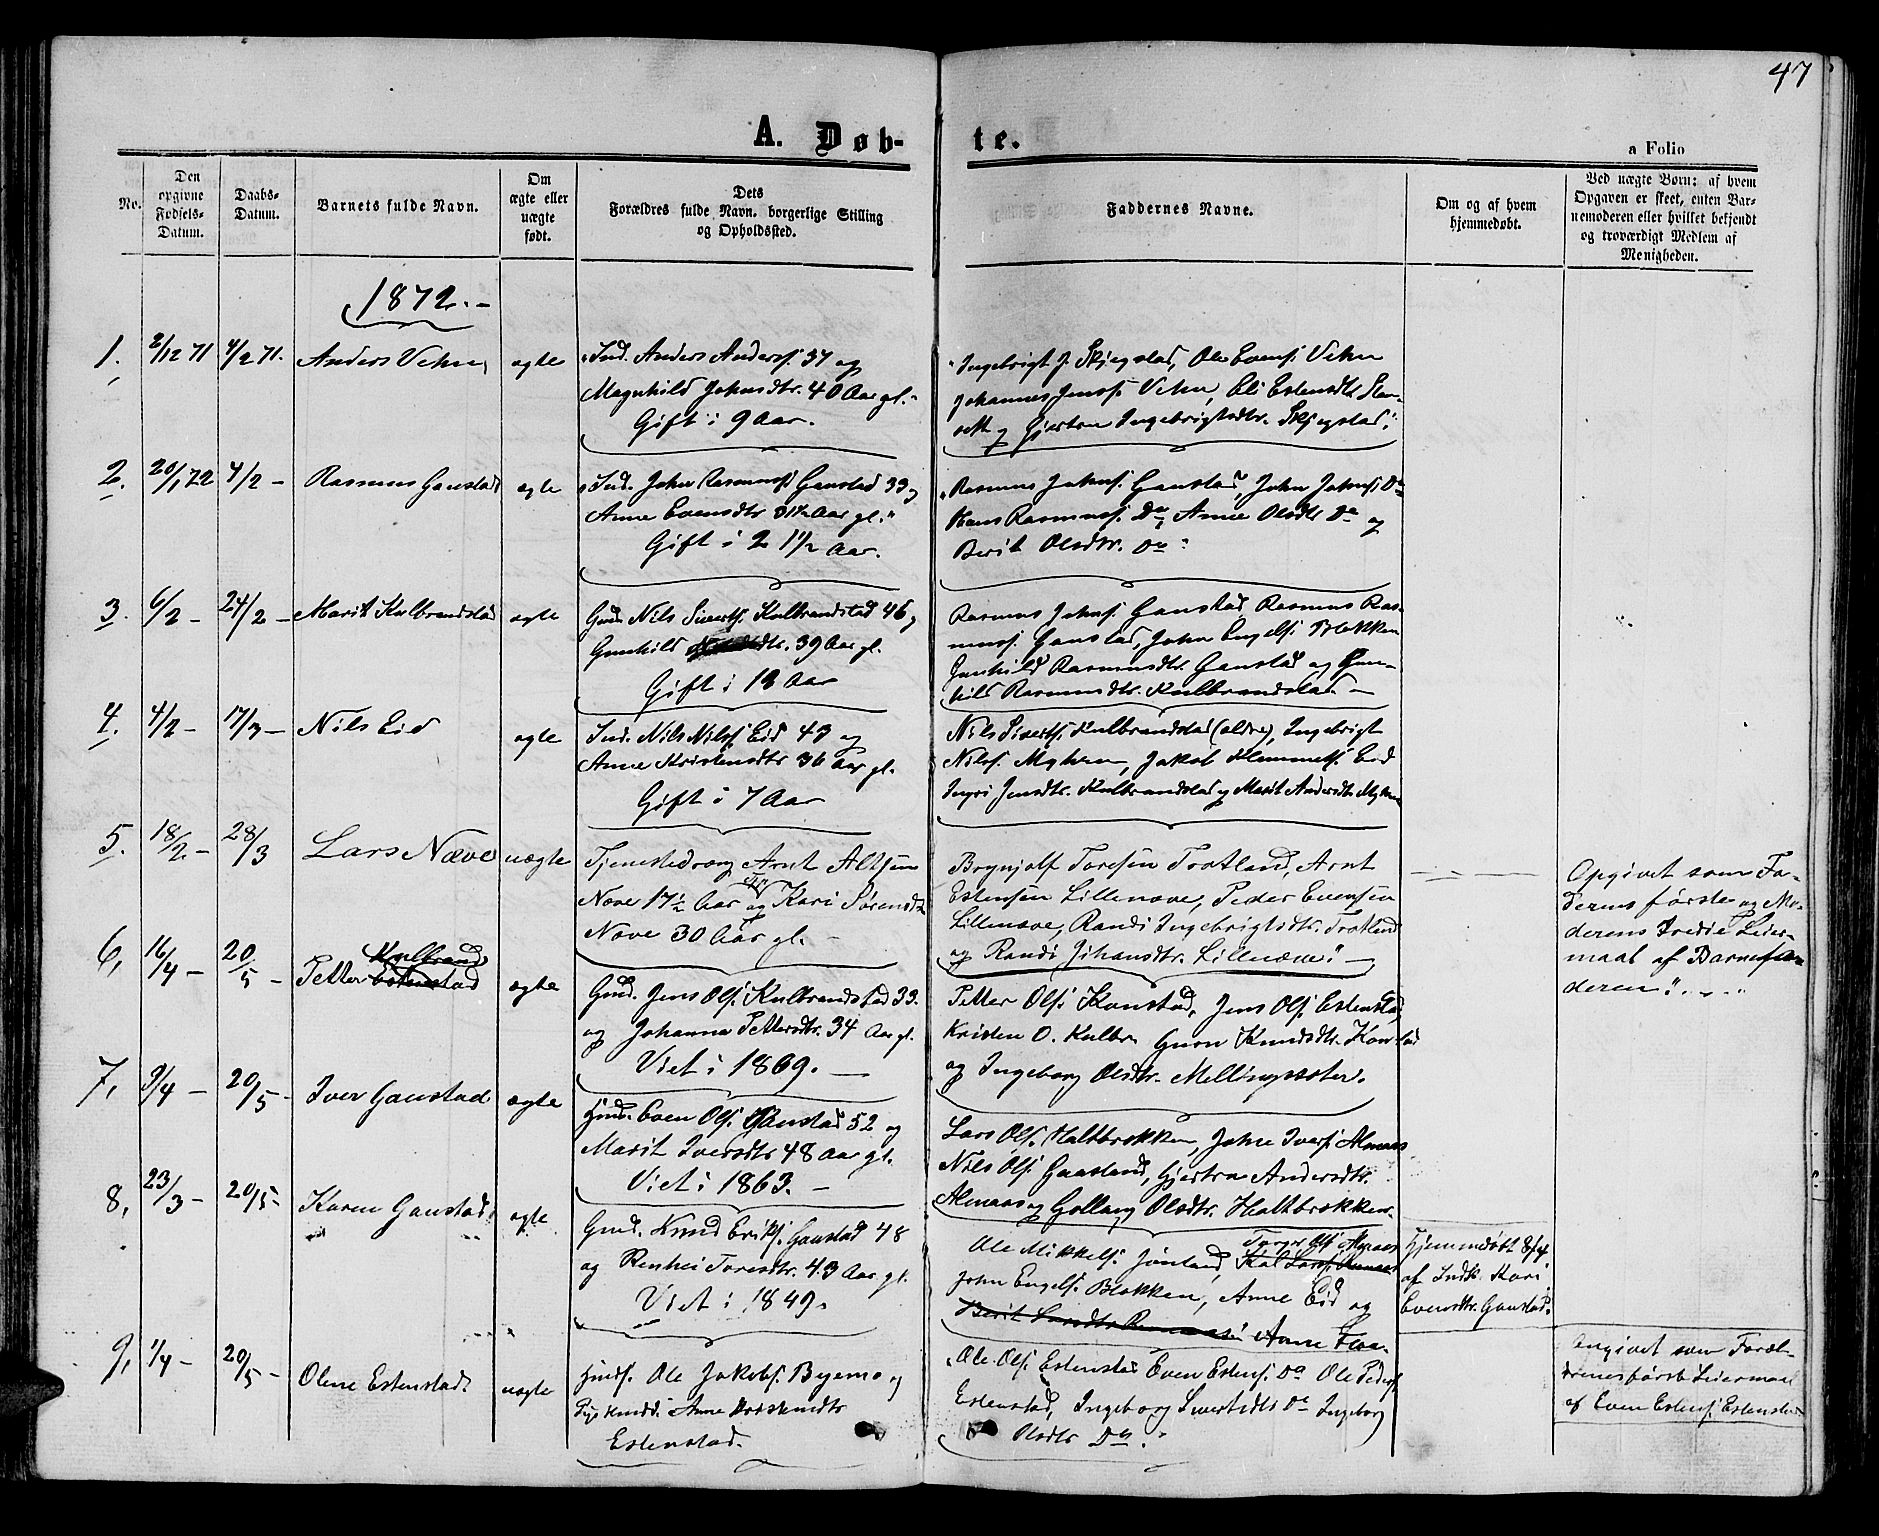 47
A. Døb-
te.
a Folio
No.
Den
opgivne
Fødsels-
Datum.
Daabs-
Datum.
Barnets fulde Navn.
Om
ægte eller
uægte
født.
Dets
Forældres fulde Navn, borgerlige Stilling
og Opholdssted.
Faddernes Navne.
Om og af hvem
hjemmedøbt.
Ved uægte Børn: af hvem
Opgaven er skeet, enten Bar-
nemoderen eller hvilket bekjendt
og troværdigt Medlem af
Menigheden.
1872.-
1. 2/12 71 4/2 71. Anders ægte
Ind. Anders Anderss. 37 og
Magnhild Johnsdtr. 40 Aar gl.
Gift i 9 Aar.
Ingebrigt J. Skjegstad, Ole Evens.
Johannes Jenss. Estensdtr.
og Gjertru Ingebrigtsdtr. Skjegstad.
2. 20/1 72 4/2 - Rasmus Ganstad ægte
Ind. John Rasmuss. Ganstad 33 og
Anne Evensdtr 31½ Aar gl.
Gift i 2 1½ Aar.
Rasmus Johns. Ganstad, John Johns. Do
Hans Rasmuss. Do, Anne Olsdtr Do og
Berit Olsdtr. Do
3. 6/2 - 24/2 - Marit Kulbrandstad ægte
Gmd. Nils Siverts. Kulbrandstad 46 og
Gunhild dtr. 39 Aar gl.
Gift i Aar
Rasmus Johns. Ganstad Rasmus Ras-
muss. Ganstad, John Engels. Blokken
Gunhild Rasmusdtr. Ganstad og Gun-
hild Rasmusdtr. Kulbrandstad -
4. 4/2 - 17/3 - Nils Eid ægte
Ind. Nils Nilss. Eid 43 og
Anne Kristensdtr 36 Aar gl.
Gift i 7 Aar
Nils Siverts. Kulbrandstad (ældre), Ingebrigt
Nilss. Myhren, Jakob Klemmets. Eid
Ingri Jensdtr. Kulbrandstad og Marit Andersdtr. Myhren
5. 18/2 - 28/3 Lars Næve uægte
Tjenestedreng Arnt
Næve 17½ Aar og Kari Sørensdtr
Næve 30 Aar gl. -
Brynjolf Toresen Trotland, Arnt
Estensen Lillenæve, Peder Evensen
Lillenæve, Randi Ingebrigtsdtr. Trotland
og Randi Johansdtr. Lillenæve. -
Opgivet som Fa-
derens første og Mo-
derens tredie Leier-
maal af Barnefa-
deren.
6, 16/4 - 20/5 - Petter Kulbrandstad ægte
Gmd. Jens Ols. Kulbrandstad 33
og Johanna Pettersdtr. 34 Aar gl.
Viet i 1869. -
Petter Ols. Konstad, Jens Ols. Estenstad
Kristen O. Kulbr. Guru Knudsdtr. Konstad
og Ingeborg Olsdtr. Mellingsæter.
7, 9/4 - 20/5 - Iver Ganstad ægte
Gmd. Even Ols. Ganstad 52 og
Marit Iversdtr 48 Aar gl.
Viet i 1863. -
Lars Ols. Haltbrækken, John Ivers. Almaas
Nils Ols. Gaasland, Gjertru Andersdtr.
Almaas og Gollaug Olsdtr. Haltbrækken.
8, 23/3 - 20/5 - Karen Ganstad ægte
Gmd. Knud Eriks. Ganstad 48
og Renhei Toresdtr. 43 Aar gl.
Viet i 1849.
Ole Mikkels. Jønland, Torger Ols. Almaas
John Engels. Blokken, Anne Eid og
Anne
Hjemmedøbt 8/4
af Indk. Kari
Evensdtr. Ganstad.
9, 1/4 - 20/5 - Olene Estenstad uægte
Ole Jakobs. Byemo og
Anne Kristensdtr
Estenstad.
Ole Ols. Estenstad Even Estens. Do Ole Peders.
Estenstad, Ingeborg Sivertsdtr Do Ingeborg
Olsdtr Do.
Angivet som Foræl-
drenes første Leiermaal
af Even Estens. Estenstad